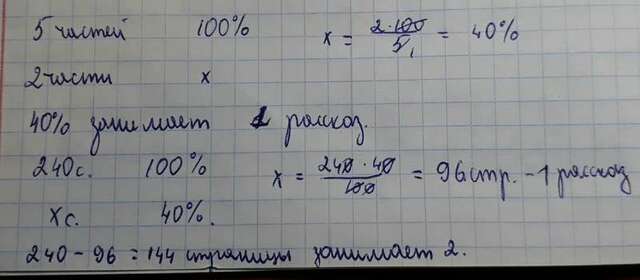 5 частей 100% x = 2·100/5 = 40%
2 части x
40% занимает 1 рассказ.
240 с. 100% x = 240·40/100 = 96 стр. - 1 рассказ
x с. 40%.
240 - 96 = 144 страницы занимает 2.